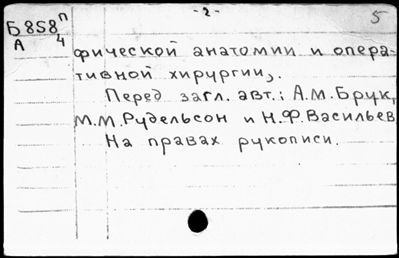 -2-
5
Б 858 п
А 4
фической анатомии и опера-
тивной хирургии,.
Перед загл. авт.: А.М.Брук,
М.М.Рудельсон и Н.Ф.Васильев
На правах рукописи.